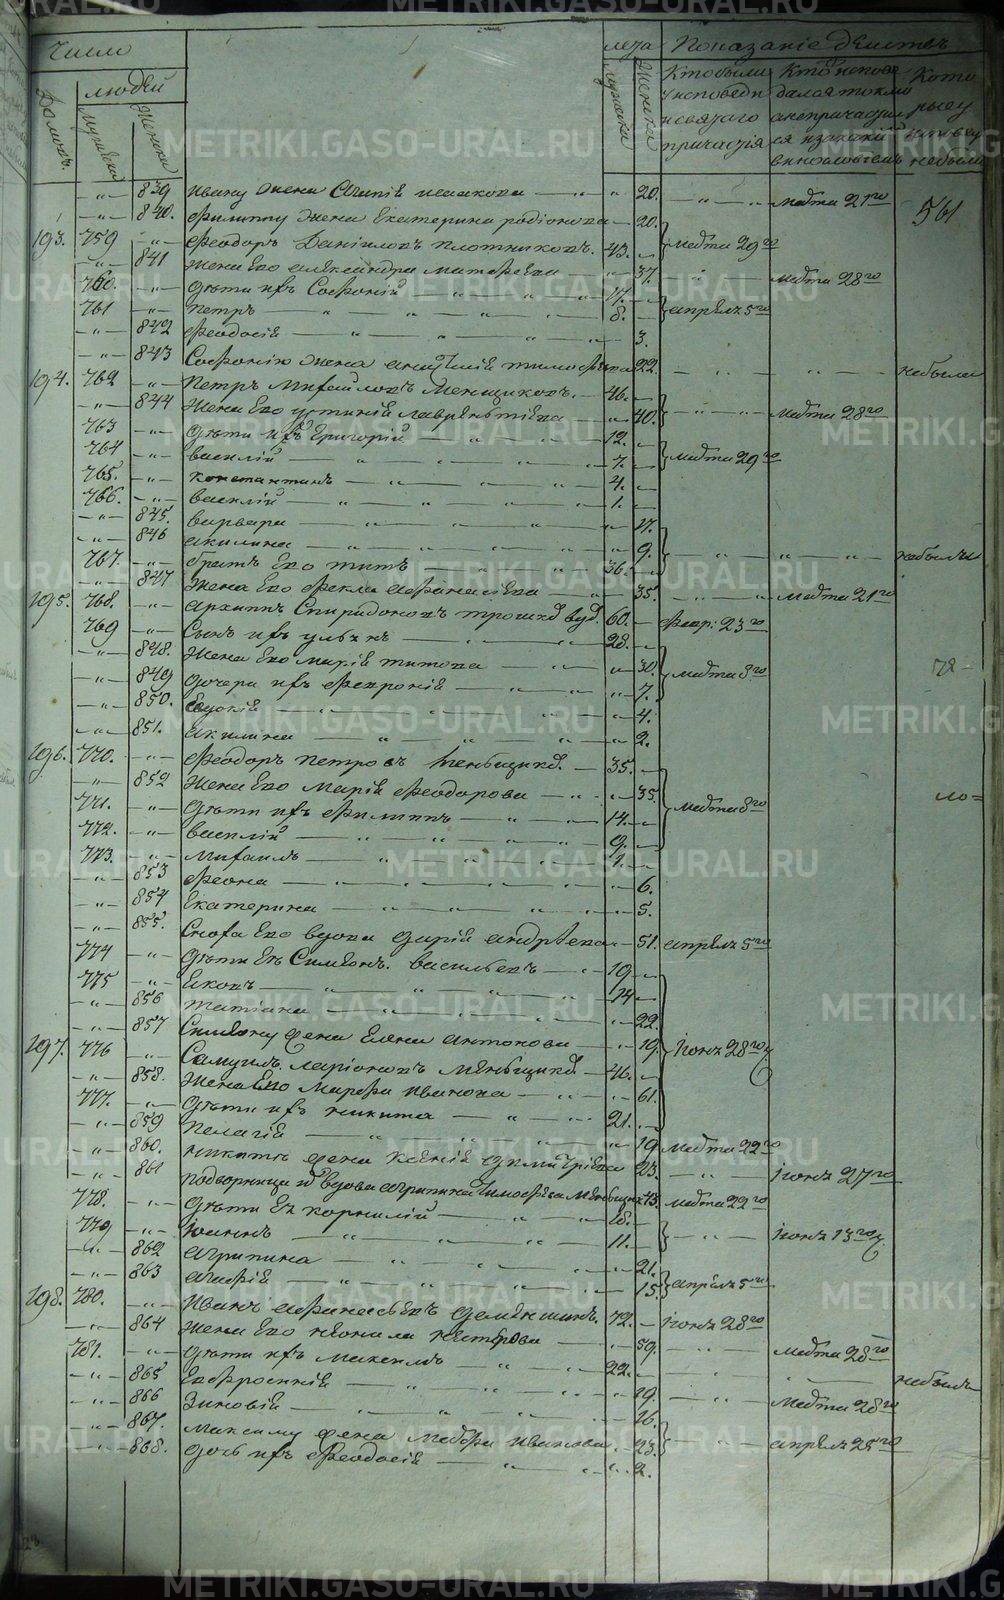 Число
лета Показаніе действъ
людей
Домовъ. Мужеска Женска
мужеска женска
Кто были у исповеди и святаго причастія
Кто исповедался токмо а не причастился и за какой виною
Которые у исповеди не были
561
839 Ивану жена Агапія Исаакова 20. марта 21го
840. Филиппу жена Екатерина Родіонова 20.
193. 759 Феодоръ Даніиловъ Плотниковъ. 43. марта 29го
841 Жена Его Александра Матфеева 37. марта 28го
760. Дети ихъ Софроній 17.
761 Петръ 8. апреля 5го
842 Феодосія 3.
843 Софронію жена 22. небыла
194. 762 Петръ Михайловъ Менщиковъ. 46.
844 Жена Его Устинія Лаврентіева 40. марта 28го
763 Дети ихъ Григорій 12.
764 Василій 7. марта 29го
765. Константинъ 4.
766. Василій 1.
845. Варвара 17.
846 Акилина 9. небыли
767. братъ Его Титъ 36.
847 Жена Его Фекла Афанасіева 35. марта 21го
195. 768. Архиппъ Спиридоновъ 60. Февр: 23го
769 Сынъ ихъ 28.
848. Жена Его Марія Титова 30. марта 8го
849 Дочери ихъ Февронія 7.
850. Евдокія 4.
851. Акилина 2.
196. 770. Феодоръ Петровъ Меньщик. 35.
852 Жена Его Марія Феодорова 35. марта 8го
771. Дети ихъ Филиппъ 14.
772. Василій 9.
773. Михаилъ 1.
853 Феона 6.
854 Екатерина 5.
855. Сноха Его вдова Дарія Андреева 51. апреля 5го
774 Дети Ея Симеонъ. Васильевъ 19
775 Яковъ 14
856 Татіана 22.
857 Симеону жена Елена Антонова 19. Іюня 28го
197. 776 Самуилъ Ларіоновъ Меньщик. 46.
858. Жена Его Марфа Иванова 61.
777. Дети ихъ Никита 21.
859 Пелагія 19 марта 22го
860. Никите жена Ксенія 23. Іюня 27го
861 Подворница их вдова Агрипина Тимофеева 43. марта 22го
778. Дети Ея Корнилій 18.
779 Іоаннъ 11. Іюня 13го
862 Агрипина 21.
863 Агафія 15. апреля 5го
198. 780. Иванъ Афанасьевъ 72. Іюня 28го
864 Жена Его Неонила Нестерова 59. марта 28го
781. Дети ихъ Максимъ 22. небылъ
865 Евфросинія 19. марта 28го
866 Зиновія 16.
867. Максиму жена Мавра Иванова 23. апреля 25го
868. Дочь ихъ Феодосія 2.
METRIKI.GASO-URAL.RU